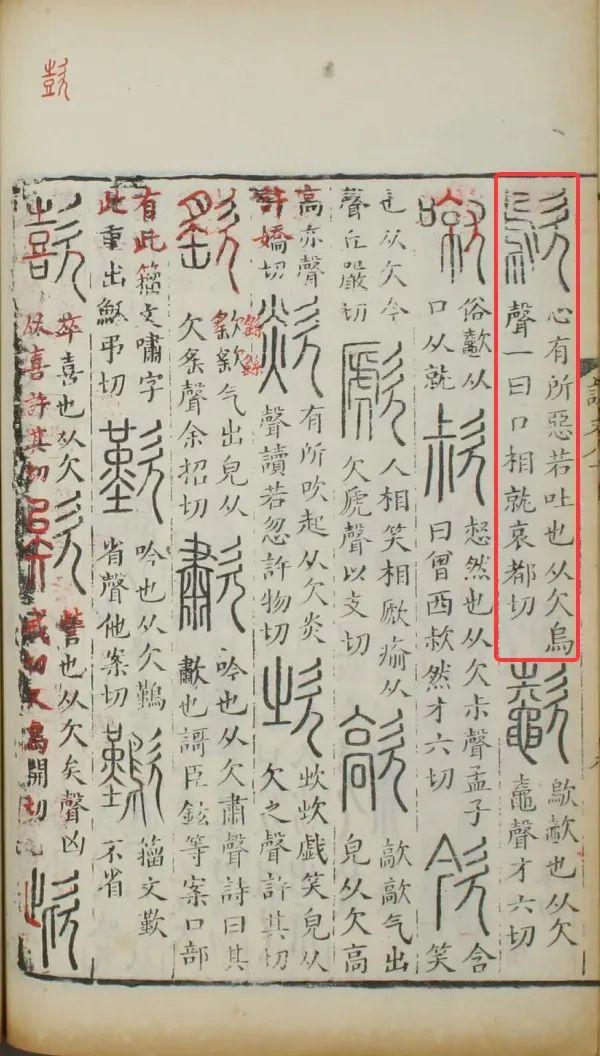 歖
歍
心有所惡若吐也从欠烏
聲一曰口相就哀都切
歍歍也从欠
鼀聲才六切
噈
俗从
口从就
㰗
惄然也从欠尗聲孟子
曰曾西㰗然才六切
含
笑
也从欠今
聲丘嚴切
歋
人相笑相歋瘉从
欠虒聲以支切
歊
歊歊气出
皃从欠高
高亦聲
許嬌切
欻
有所吹起从欠炎
聲讀若忽許物切
㰞
㰞㰞戲笑皃从
欠之聲許其切
气出皃从
欠䍃聲余招切
歗
吟也从欠肅聲詩曰其
歗也謌臣鉉等案口部
有此籀文嘯字
此重出穌弔切
歎
吟也从欠鸛
省聲他案切
籀文歎
不省
歖
卒喜也从欠
从喜許其切
訾也从欠矣聲凶
戒切又烏開切
欪